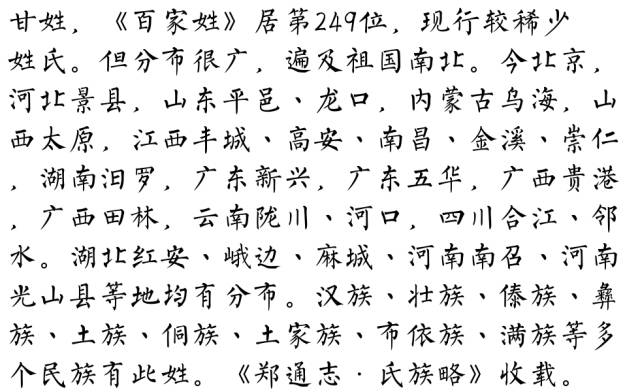 甘姓，《百家姓》居第249位，现行较稀少
姓氏。但分布很广，遍及祖国南北。今北京，
河北景县，山东平邑、龙口，内蒙古乌海，山
西太原，江西丰城、高安、南昌、金溪、崇仁
，湖南汨罗，广东新兴，广东五华，广西贵港
，广西田林，云南陇川、河口，四川合江、邻
水。湖北红安、峨边、麻城、河南南召、河南
光山县等地均有分布。汉族、壮族、傣族、彝
族、土族、侗族、土家族、布依族、满族等多
个民族有此姓。《郑通志·氏族略》收载。